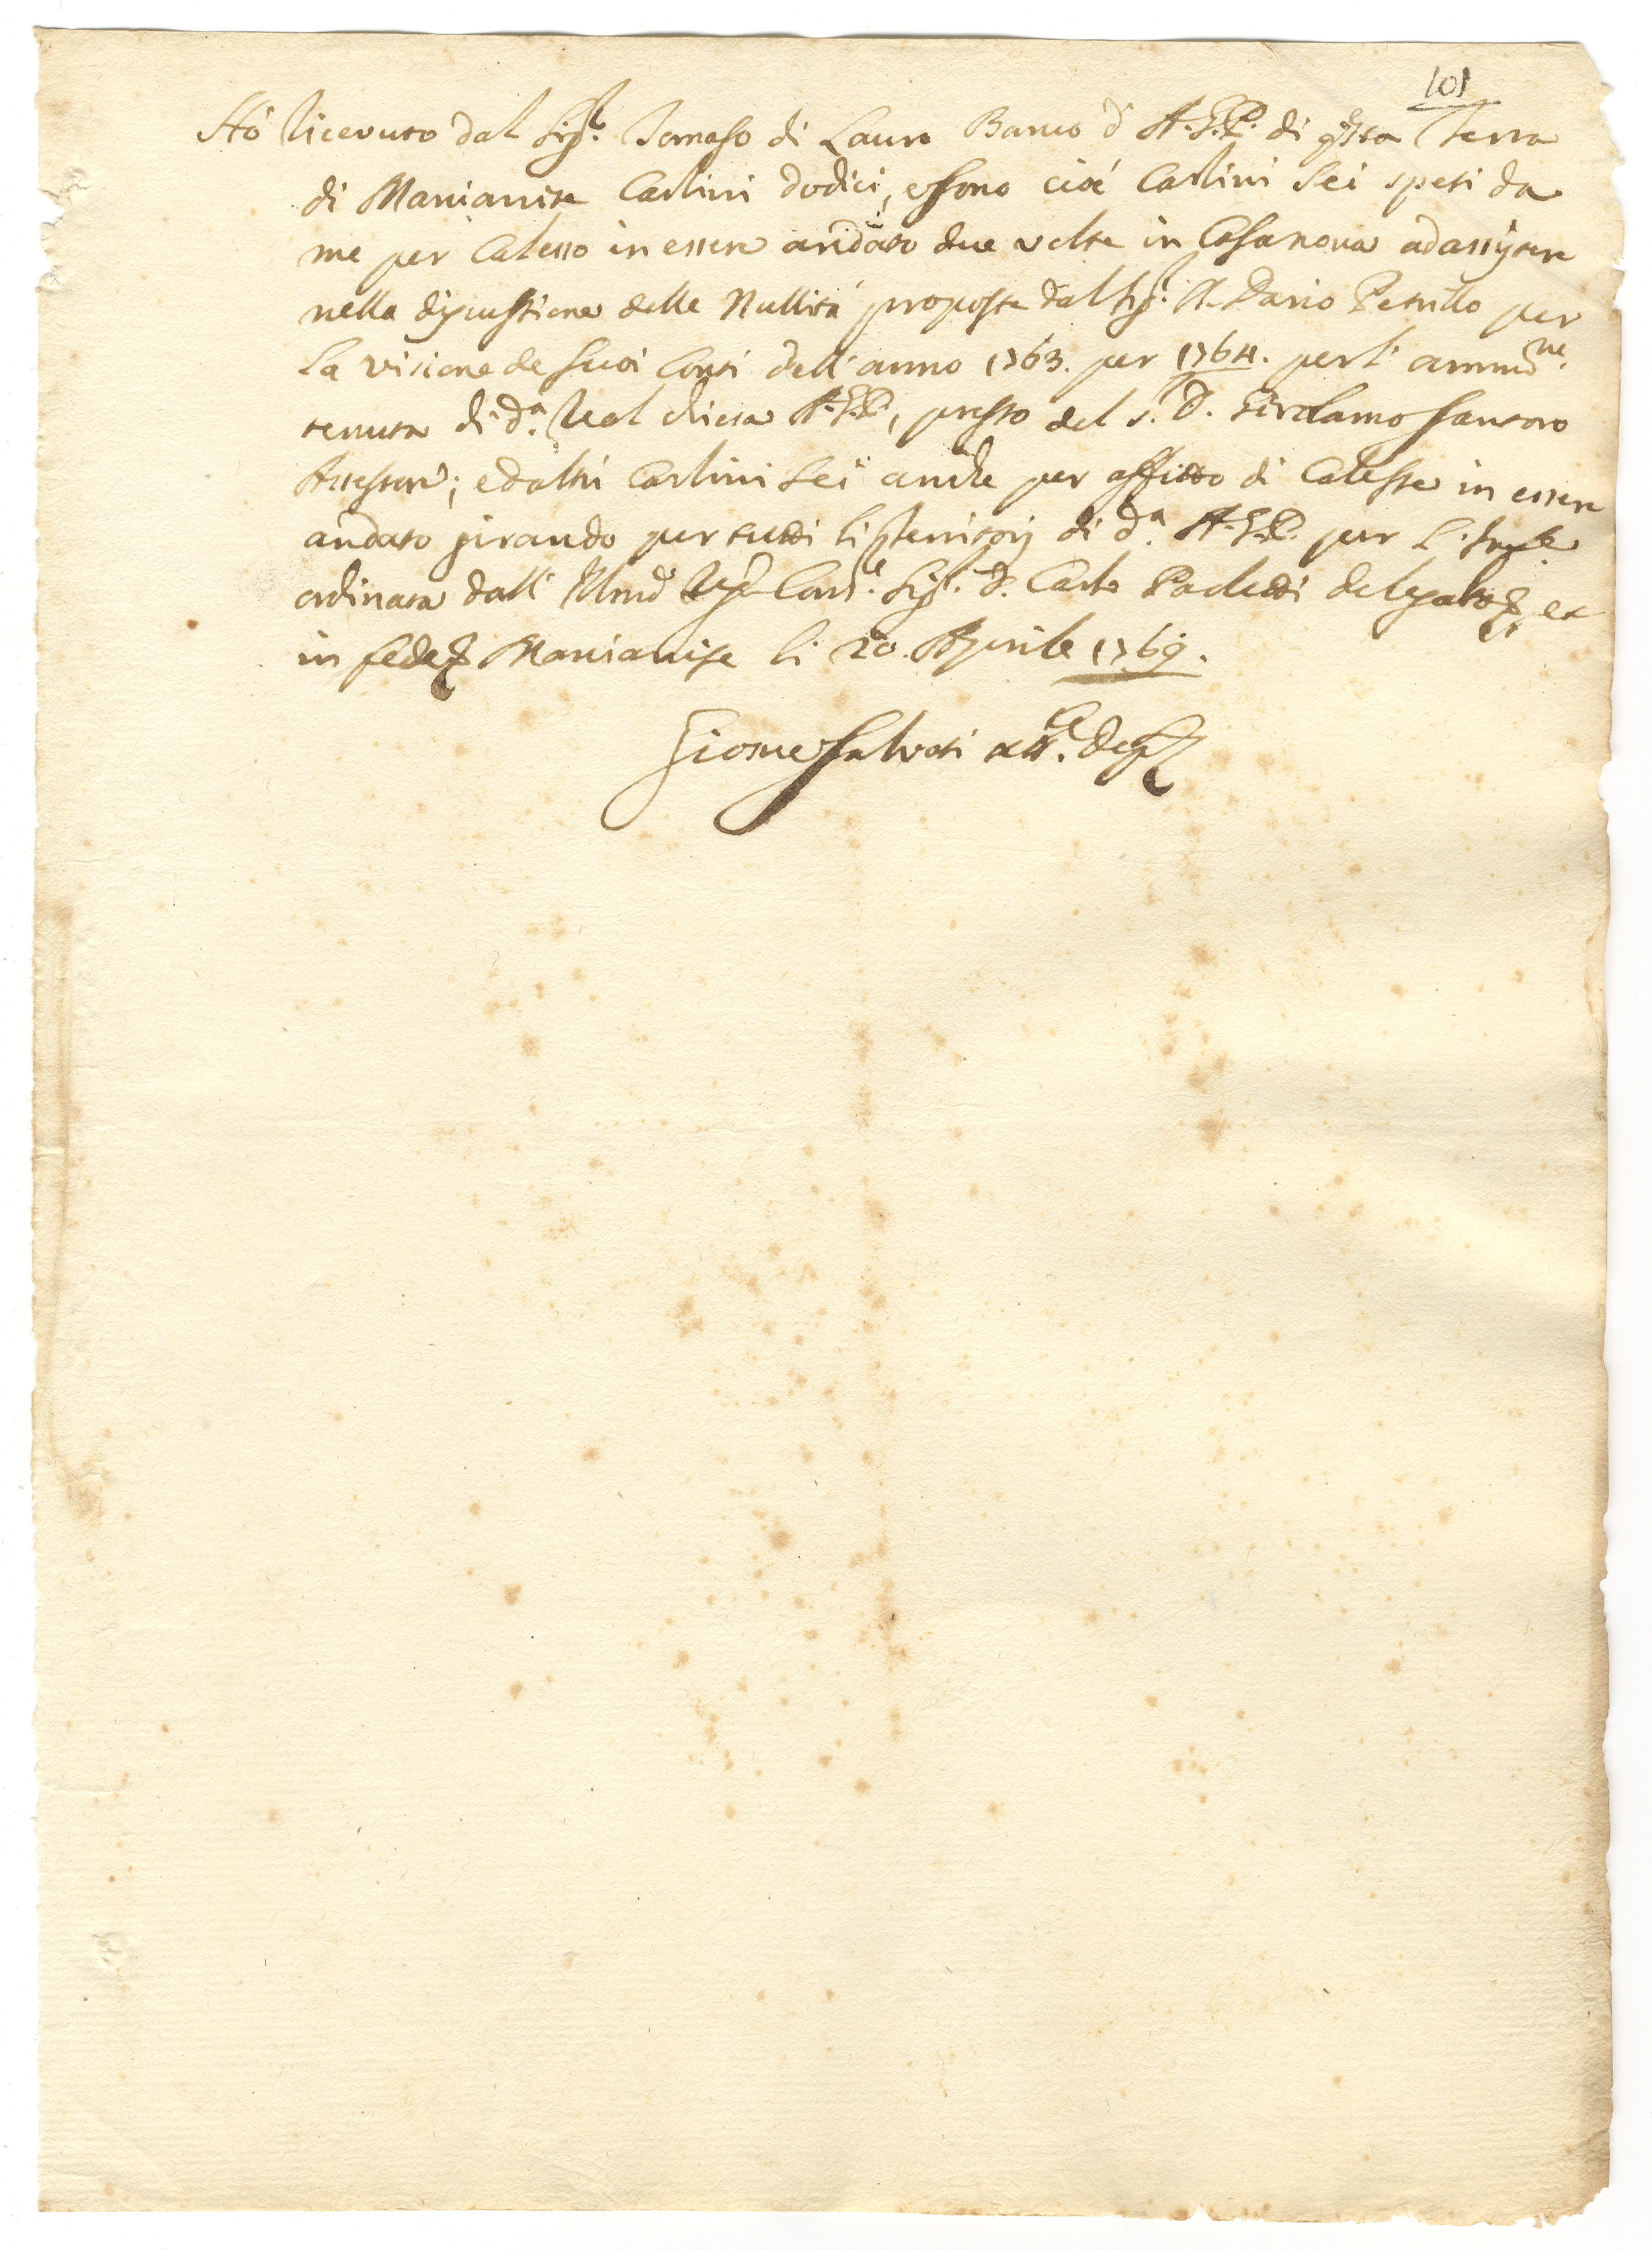 101
Hò Ricevuto dal Sig.r Tomaso di Lauro Banco d' A.G.P. di q̃sta Terra
di Marcianise Carlini dodici, e sono cioè Carlini sei spesi da
me per Calesso in essere andato due volte in Casanova ad assistere
nella discussione delle Nullità proposte dal Sig.r N. Dario Petrillo per
la visione de suoi Conti dell'anno 1763. per 1764. per l'amm.ne
tenuta di d.a Real Chiesa A.G.P., presso del S. D. Girolamo Santoro
Assessore; ed altri Carlini sei anche per affitto di Calesse in essere
andato girando per tutti li Territorij di d.a A.G.P. per l'
ordinata dall' Ill.mo Cons.e Sig.r D. Carlo Paoletti delegato, et
in fede Marcianise li 20. Aprile 1769.
Giosue Salvati